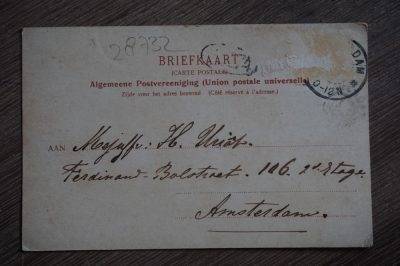 28732
BRIEFKAART
(CARTE POSTALE)
Algemeene Postvereeniging (Union postale universelle)
Zijde voor het adres bestemd. (Côté réservé à l'adresse.)
DAM
0-12N
AAN Mejuffr: H.
Ferdinand-Bolstraat. 126. 2de Etage
Amsterdam.